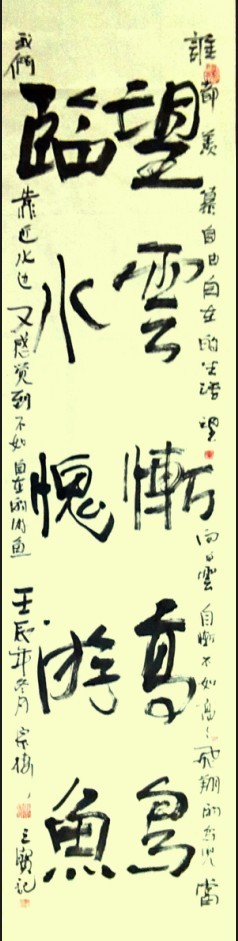 誰都羨慕自由自在的生活望向白雲自慚不如高高飛翔的鳥兒當
望雲慚高鳥
臨水愧游魚
我們靠近水边又感觉到不如自在的游魚壬辰年冬月